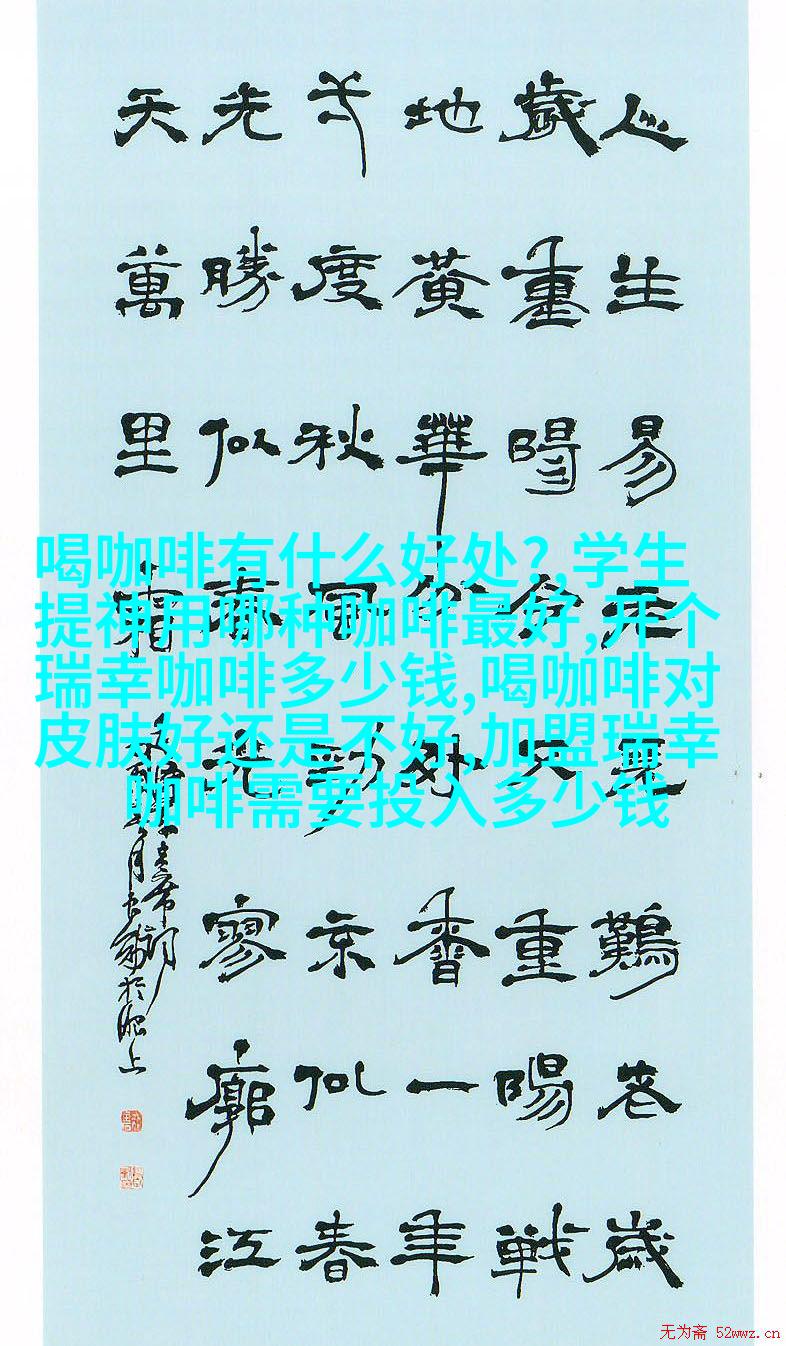 人生易老天難老歲
歲重陽今又重陽戰
地黃華分外香一年
度秋風勁不似春
光勝似春光寥廓江
天萬里霜
主席詞
於肥上
喝咖啡有什么好处?,学生
提神用哪种咖啡最好,开个
瑞幸咖啡多少钱,喝咖啡对
皮肤好还是不好,加盟瑞幸
咖啡需要投入多少钱
无为斋 52wwz.cn